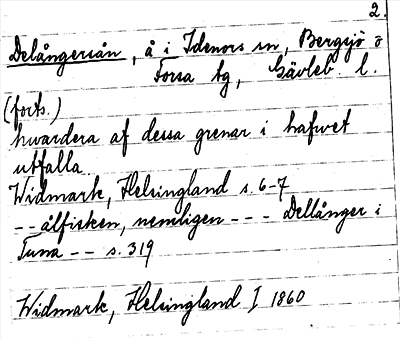 2.
Delångersån, å i Idenors sn, Bergsjö o
Forsa tg, Gävleb. l.
(forts.)
hwardera af dessa grenar i hafwet
utfalla.
Widmark, Helsingland s. 6-7
-- ålfisken, nemligen --- Dellånger i
Tuna -- s. 319
Widmark, Helsingland I 1860